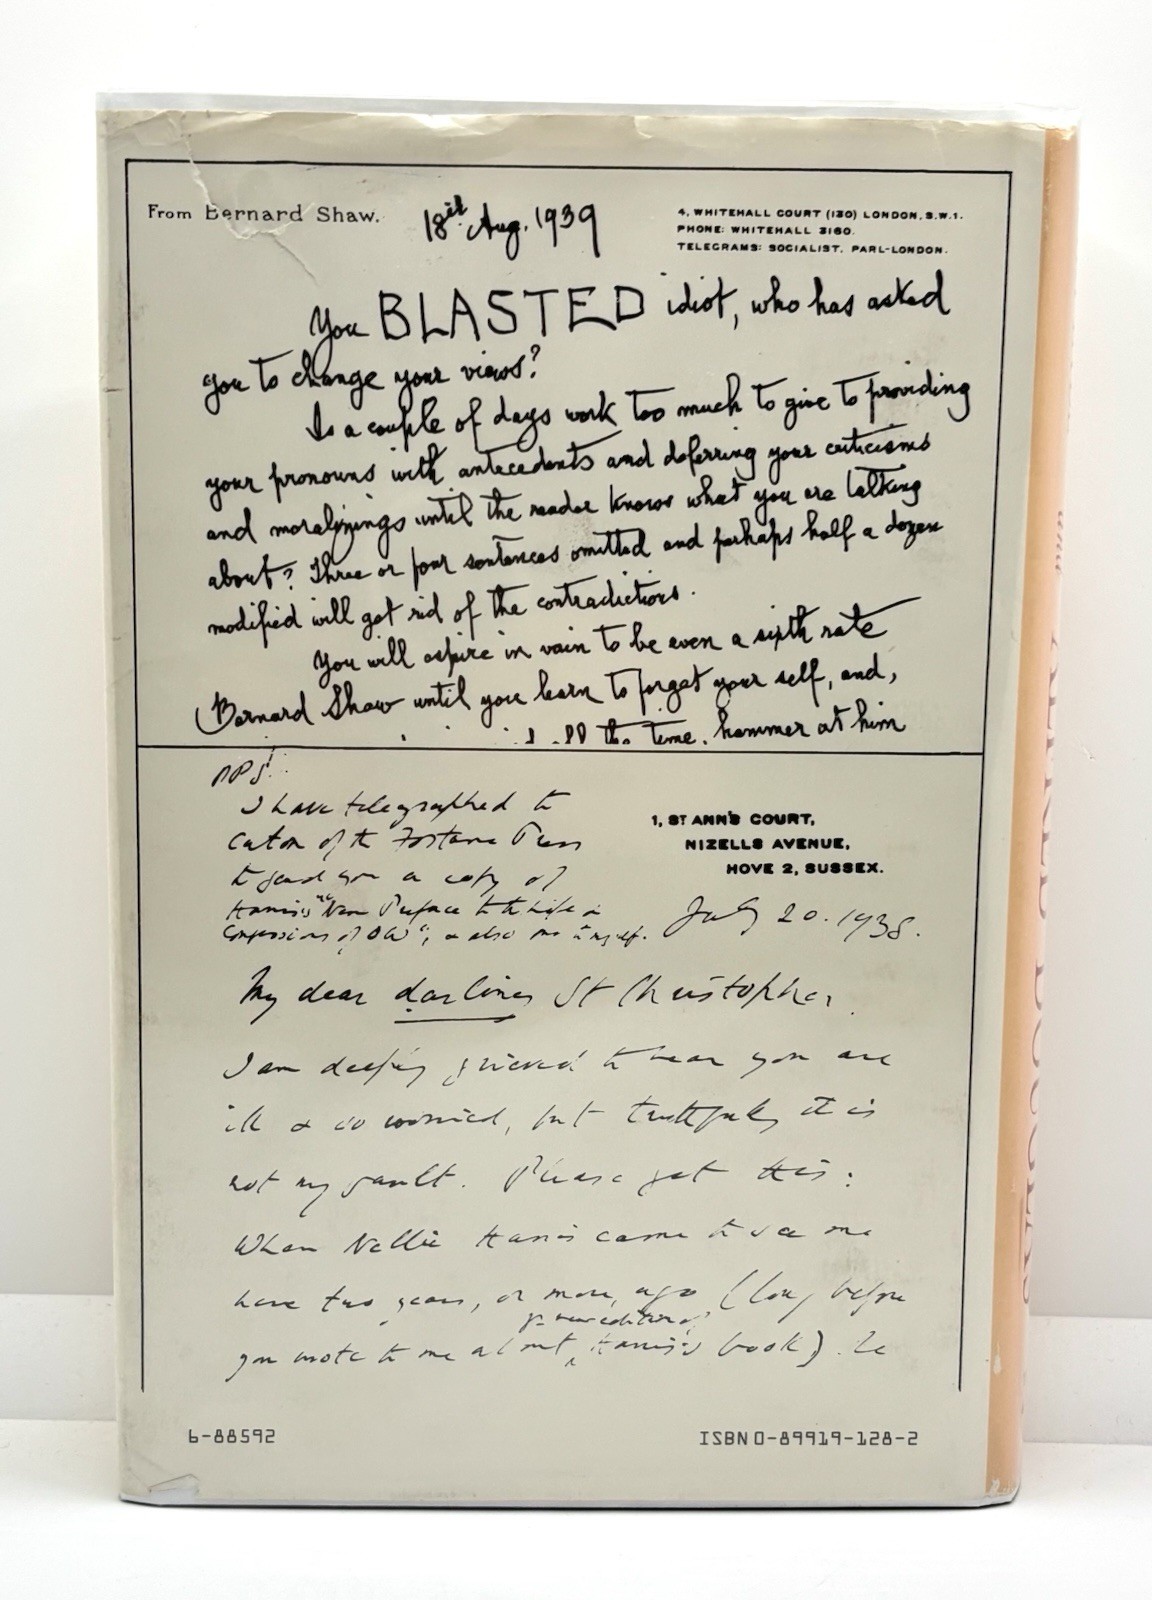 From Bernard Shaw.
18th Aug. 1939
4, WHITEHALL COURT (130) LONDON, S.W.1.
PHONE: WHITEHALL 3160.
TELEGRAMS: SOCIALIST, PARL-LONDON.
You BLASTED idiot, who has asked
you to change your views?
Is a couple of days work too much to give to providing
your pronouns with antecedents and deferring your criticisms
and moralizings until the reader knows what you are talking
about? Three or four sentences omitted and perhaps half a dozen
modified will get rid of the contradictions.
You will aspire in vain to be even a sixth rate
Bernard Shaw until you learn to forget your self, and,
all the time, hammer at him
PPS.
I have telegraphed to
Caton of the Fortune Press
to send you a copy of
Harris's "New Preface to the Life &
Confessions of OW", & also one to myself.
1, ST ANN'S COURT,
NIZELLS AVENUE,
HOVE 2, SUSSEX.
July 20. 1938.
My dear darling St Christopher,
I am deeply grieved to hear you are
ill & so worried, but truthfully it is
not my fault. Please get this:
When Nellie Harris came to see me
here two years, or more, ago (long before
you wrote to me about Harris's book)
new edition of
6-88592
ISBN 0-89919-128-2
ALFRED DOUGLAS